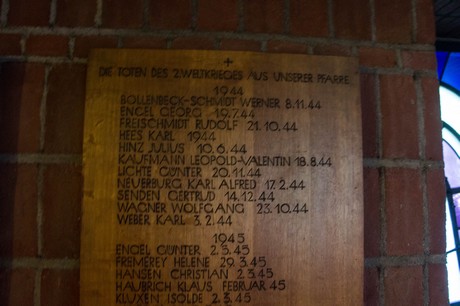 DIE TOTEN DES 2.WELTKRIEGES AUS UNSERER PFARRE
1944
BOLLENBECK-SCHMIDT WERNER 8.11.44
ENGEL GEORG 19.7.44
FREISCHMIDT RUDOLF 21.10.44
HEES KARL 1944
HINZ JULIUS 10.6.44
KAUFMANN LEOPOLD-VALENTIN 18.8.44
LICHTE GÜNTER 20.11.44
NEUERBURG KARL ALFRED 17.2.44
SENDEN GERTRUD 14.12.44
WAGNER WOLFGANG 23.10.44
WEBER KARL 3.2.44
1945
ENGEL GÜNTER 2.3.45
FREMEREY HELENE 29.3.45
HANSEN CHRISTIAN 2.3.45
HAUBRICH KLAUS FEBRUAR 45
KLUXEN ISOLDE 2.3.45